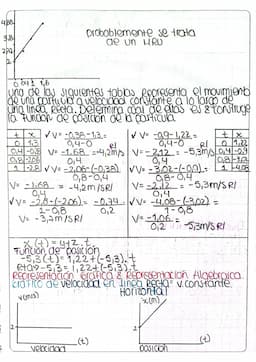 probablemente se trata
de un MRU
una de las siguientes tablas representa el movimiento
de una partícula a velocidad constante a lo largo de
una línea recta. Determina cual de ellas es & construye
la función de posición de la partícula
t x
0 1,3
✓ V= -0,38-1,3 =
0,4-0
✓ V= -1,68 = -4,2m/s
0,4
✓ V= -2,06-(-0,38)
0,8-0,4
V= -1,68 = -4,2m/s R/
0,4
✓ V= -2,8-(-2,06) = -0,74
1-0,8 0,2
V= -3,7m/s R/
✓ V= -0,9-1,22 =
0,4-0
V= -2,12 = -5,3m/s
0,4
✓ V= -3,02-(-0,9) =
0,8-0,4
V= -2,12 = -5,3m/s R/
0,4
✓ V= -4,08-(-3,02) =
1-0,8
V= -1,06 = -5,3m/s R/
0,2
t x
0 1,22
Función de posición
-5,3(t) = 1,22+(-5,3).t
Representación gráfica & Representación Algebraica
Gráfico de velocidad en línea recta = v. constante.
Horizontal
v(m/s)
x(m)
(t)
(t)
velocidad
posición